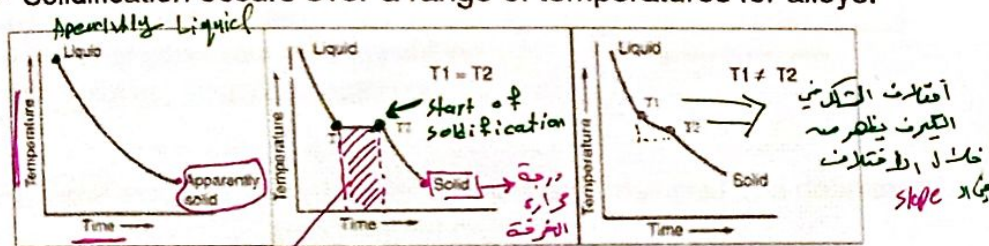 Solidification occurs over a range of temperatures for alloys.
Liquid
Liquid
Temperature
Apparently
solid
Time
Liquid
T1 = T2
start of
soldification
T2
Temperature
Solid
درجة
حرارة
الغرفة
Time
Liquid
T1 ≠ T2
T1
T2
Temperature
Solid
Time
يظهر
slope